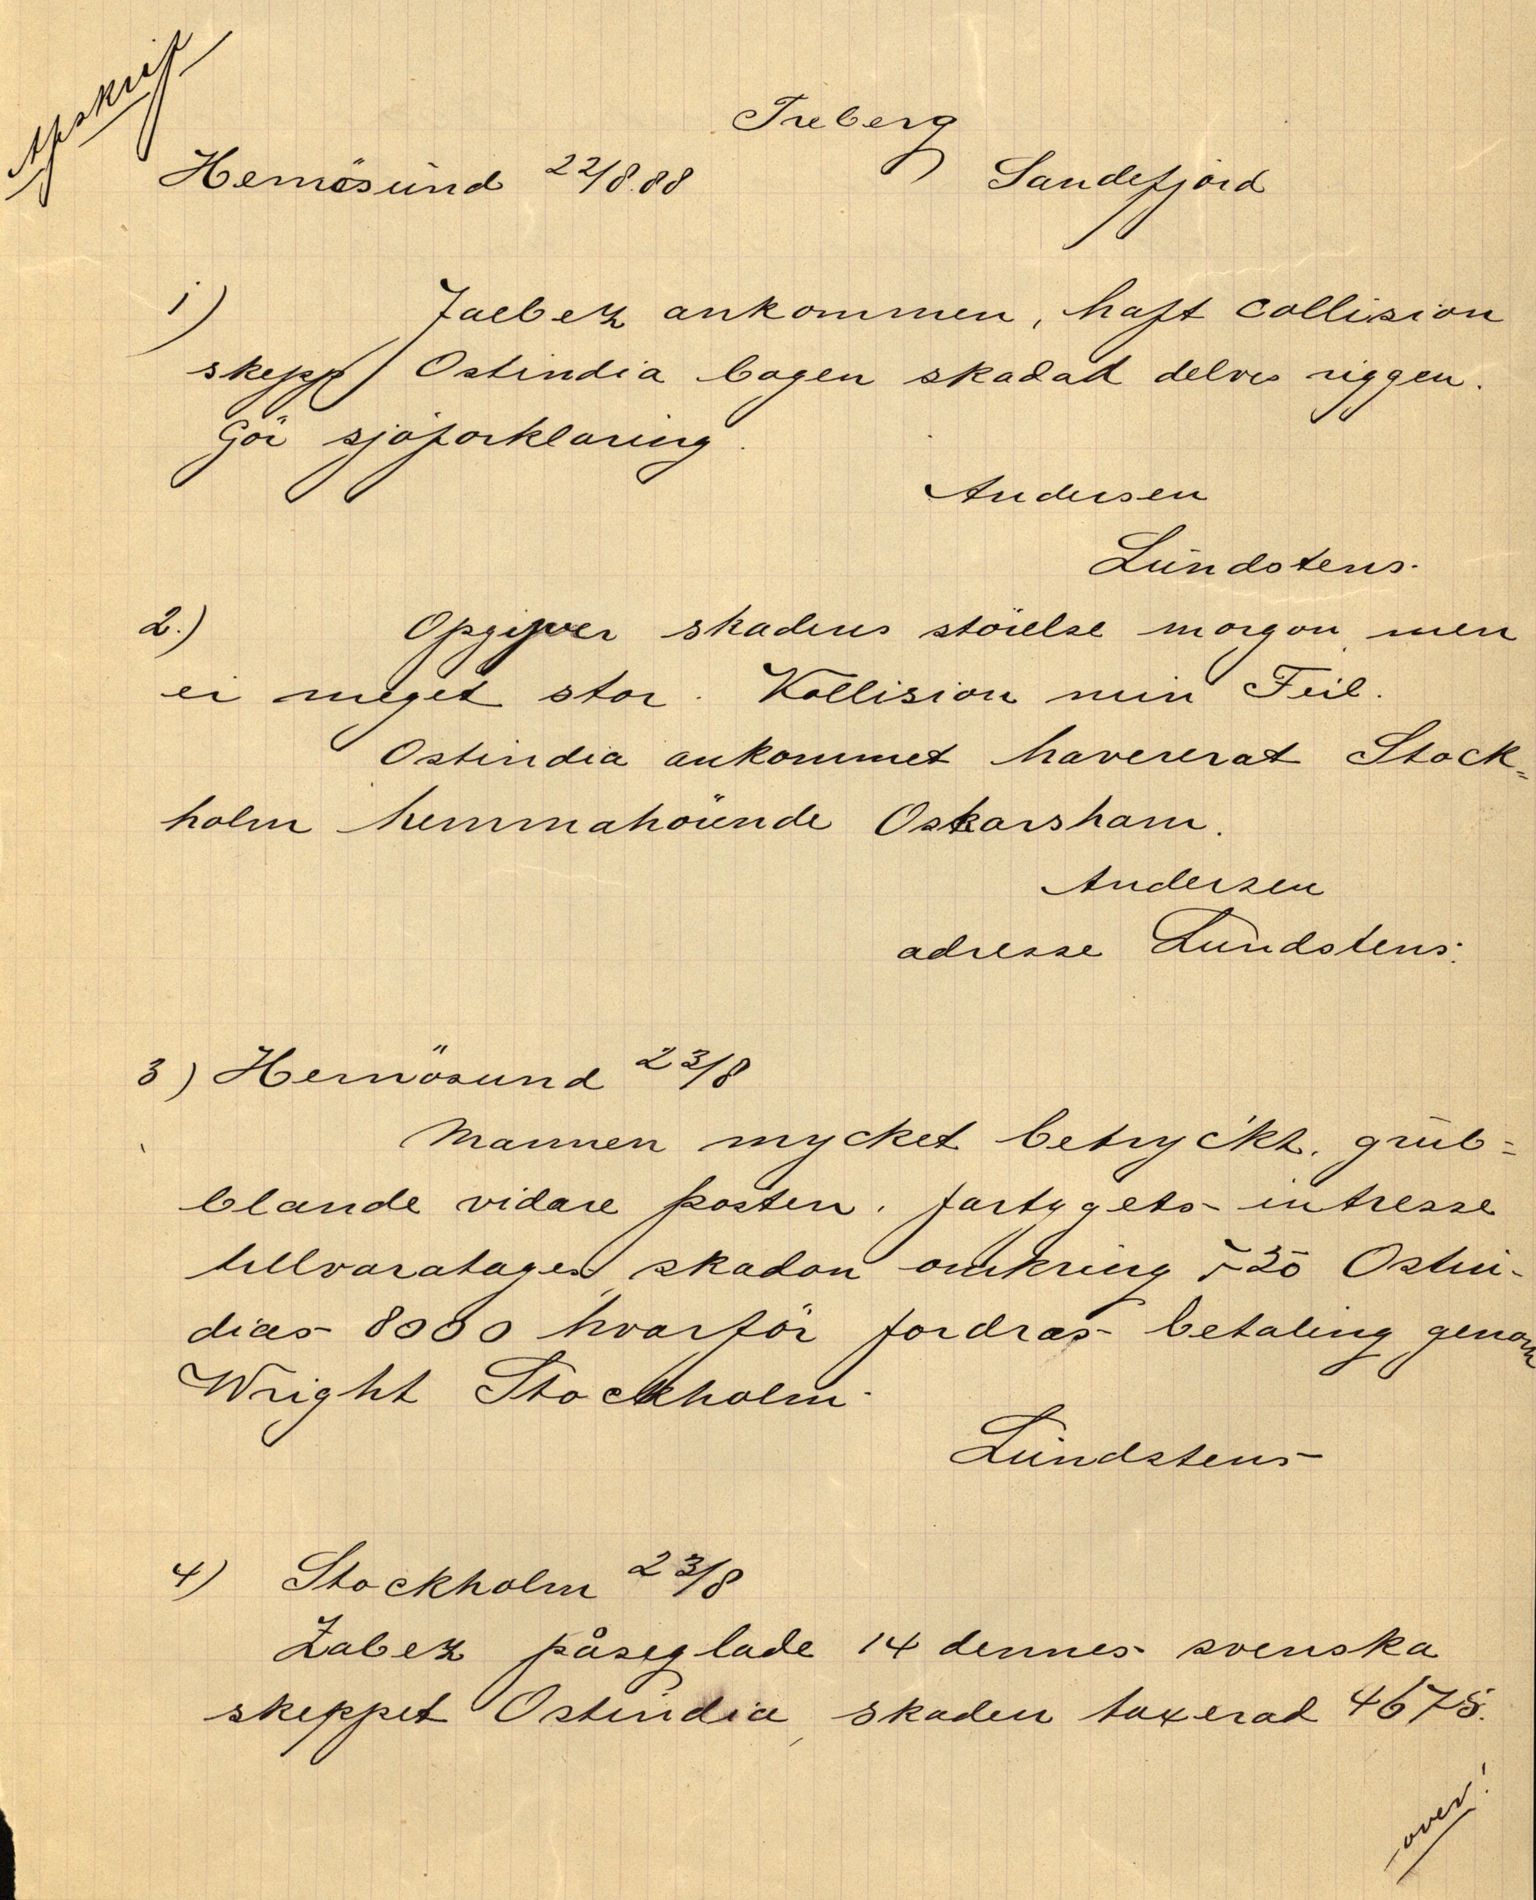 Afskrift
Treberg
Hernösund 22/8.88 Sandefjord
1) Jaebez ankommen, haft collision
skepp Ostindia bogen skadad delvis riggen.
Gör sjöforklaring.
Andersen
Lundstens.
2.) Opgiver skadens störelse morgon men
ei meget stor. Kollision min Feil.
Ostindia ankommet havererat Stock=
holm hemmahörende Oskarsham.
Andersen
adresse Lundstens.
3) Hernösund 23/8
Mannen mycket betryckt, grub=
blande vidare posten. fartygets intresse
tillvaratages, skadan omkring Ostin-
dias 8000 hvarför fordras betaling genom
Wright Stockholm.
Lundstens
4) Stockholm 23/8
Zabez påseglade 14 dennes svenska
skeppet Ostindia, skaden taxerad 4675.
over!